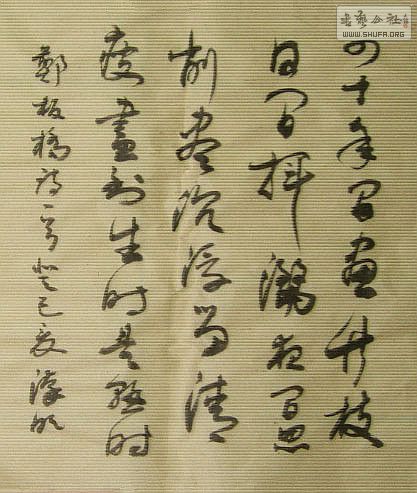 書藝公社
WWW.SHUFA.ORG
四十年間畫竹枝
日間揮灑夜間思
削盡沉浮留清
瘦畫到生時是熟時
鄭板橋詩一首癸巳夏